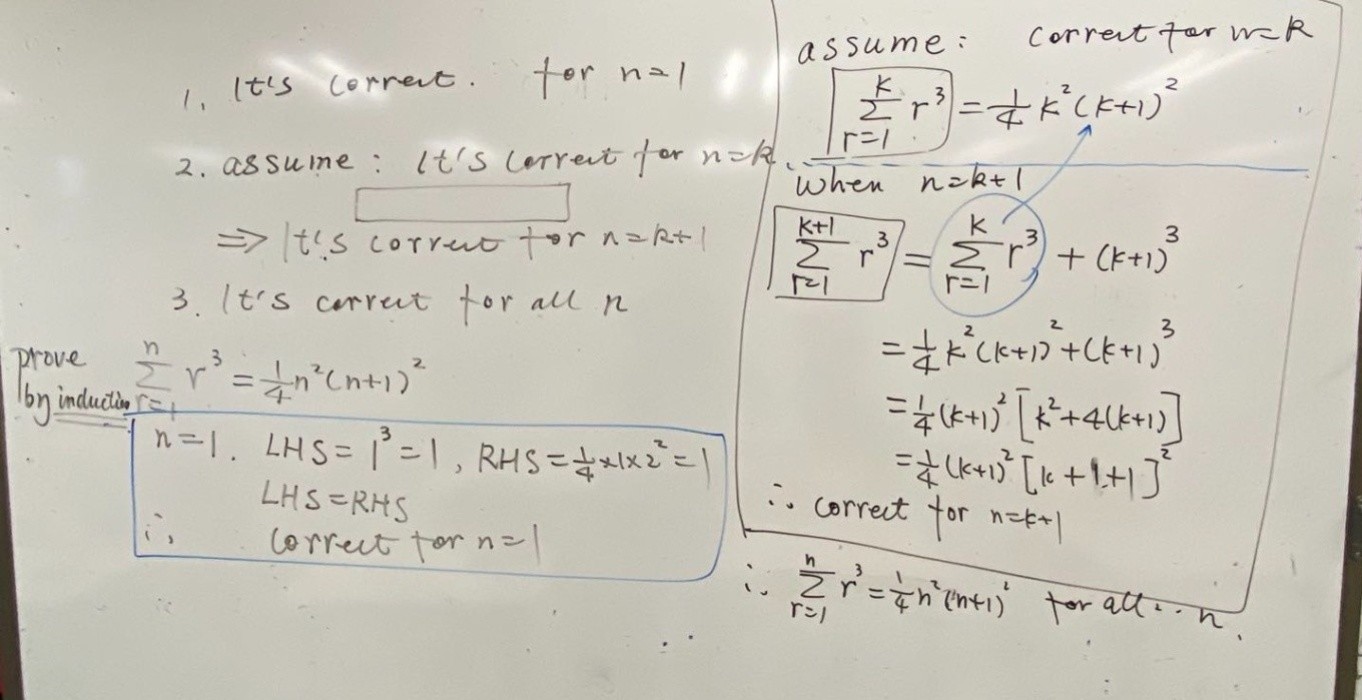 1. It's correct. for n=1
2. assume : It's correct for n=k.
⇒ It's correct for n=k+1
3. It's correct for all n
prove by induction
∑_{r=1}^{n} r³ = ¼n²(n+1)²
n=1. LHS = 1³ = 1, RHS = ¼×1×2² = 1
LHS = RHS
∴ correct for n=1
assume : correct for n=k
∑_{r=1}^{k} r³ = ¼ k²(k+1)²
when n=k+1
∑_{r=1}^{k+1} r³ = ∑_{r=1}^{k} r³ + (k+1)³
= ¼ k²(k+1)² + (k+1)³
= ¼ (k+1)² [k²+4(k+1)]
= ¼ (k+1)² [k+1+1]²
∴ correct for n=k+1
∴ ∑_{r=1}^{n} r³ = ¼n²(n+1)² for all n.